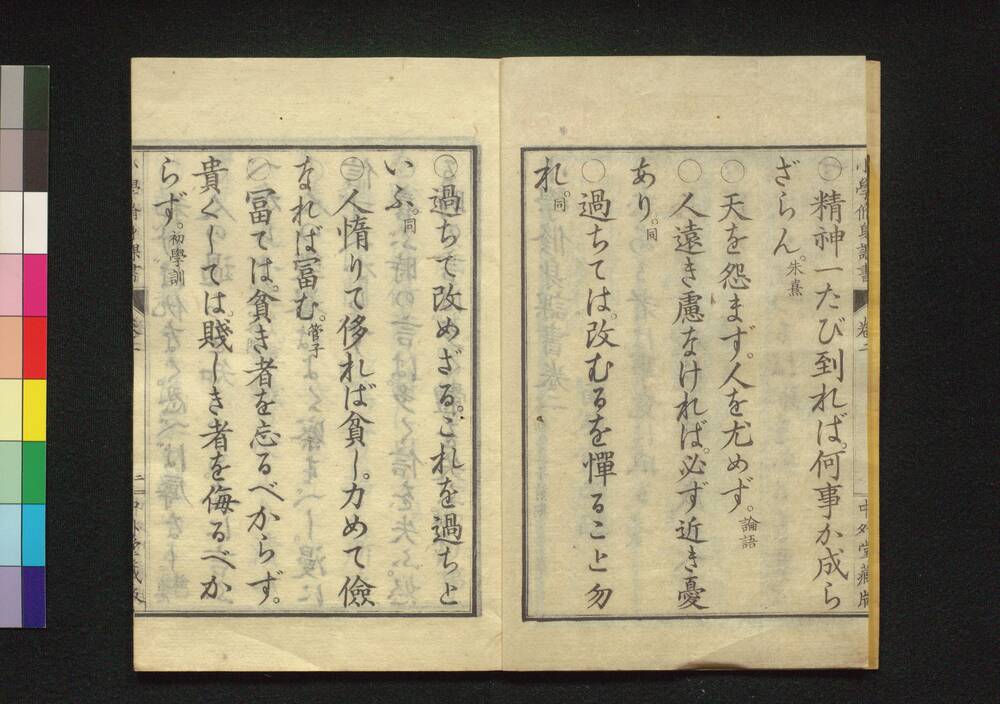 小學修身課書
卷二
中外堂藏版
〇精神一たび到れば。何事か成ら
ざらん。朱熹
〇天を怨まず。人を尤めず。論語
〇人遠き慮なければ。必ず近き憂
あり。同
〇過ちては。改むるを憚ること勿
れ。同
〇過ちて改めざる。これを過ちと
いふ。同
〇人惰りて侈れば貧し。力めて儉
なれば冨む。管子
〇冨ては。貧き者を忘るべからず。
貴くしては。賤しき者を侮るべか
らず。初學訓